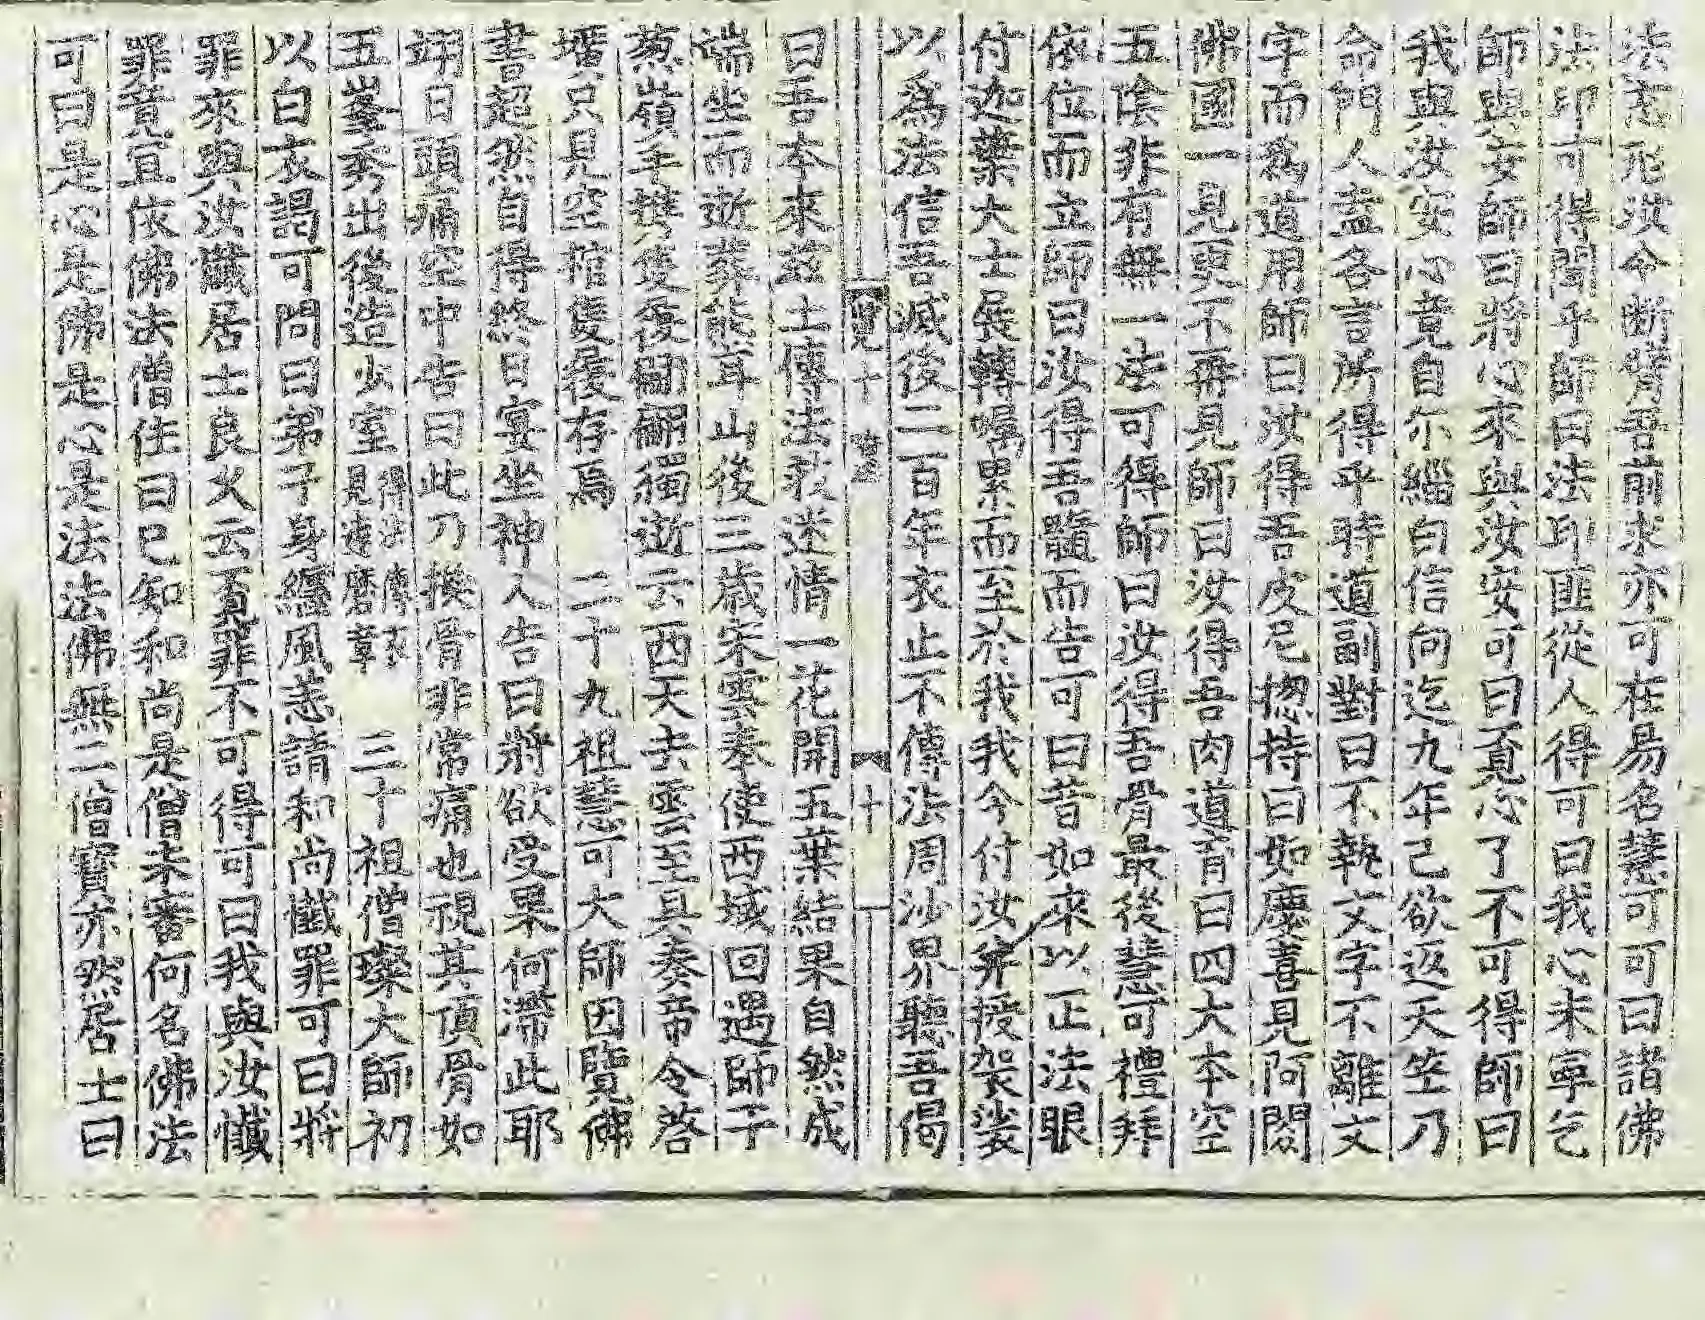 法忘形汝今断臂吾前求亦可在易名慧可可曰諸佛
法印可得聞乎師曰法印匪從人得可曰我心未寧乞
師與安師曰將心來與汝安可曰覔心了不可得師曰
我與汝安心竟自尓緇白信向迄九年已欲返天竺乃
命門人盍各言所得乎時道副對曰不執文字不離文
字而爲道用師曰汝得吾皮尼揔持曰如慶喜見阿閦
佛國一見更不再見師曰汝得吾肉道育曰四大本空
五陰非有無一法可得師曰汝得吾骨最後慧可禮拜
依位而立師曰汝得吾髓而告可曰昔如來以正法眼
付迦葉大士展轉囑累而至於我我今付汝并授袈裟
以爲法信吾滅後二百年衣止不傳法周沙界聽吾偈
曰吾本來茲土傳法救迷情一花開五葉結果自然成
端坐而逝葬熊耳山後三歲宋雲奉使西域回遇師于
葱嶺手携隻履翩翩獨逝云西天去雲至具奏帝令啓
壙只見空棺隻履存焉 二十九祖慧可大師因覽佛
書超然自得終日宴坐神人告曰將欲受果何滯此耶
翊日頭痛空中告曰此乃換骨非常痛也視其頂骨如
五峯秀出後造少室得法傳衣見達磨章 三十祖僧璨大師初
以白衣謁可問曰弟子身纏風恙請和尚懺罪可曰將
罪來與汝懺居士良久云覔罪不可得可曰我與汝懺
罪竟宜依佛法僧住曰已知和尚是僧未審何名佛法
可曰是心是佛是心是法法佛無二僧寶亦然居士曰